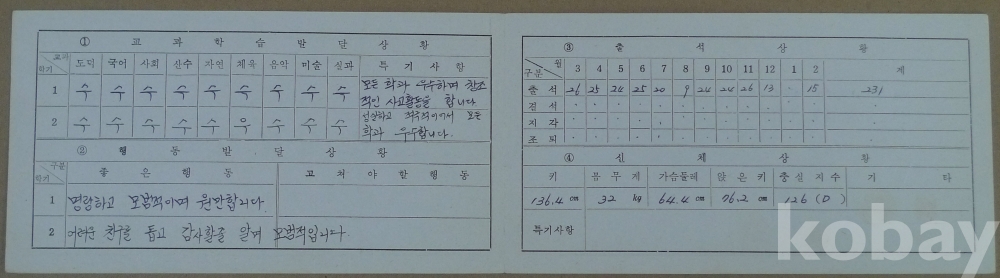 ① 교과학습발달상황
교과 도덕 국어 사회 산수 자연 체육 음악 미술 실과 특기사항
학기
1 수 수 수 수 수 수 수 수 수 모든 학과 우수하며 창조
적인 사고활동을 합니다
2 수 수 수 수 수 우 수 수 수 성실하고 적극적이어서 모든
학과 우수합니다.
② 행동발달상황
구분 좋은행동 고쳐야할행동
학기
1 명랑하고 모범적이며 원만합니다.
2 어려운 친구를 돕고 감사할줄 알며 모범적입니다.
③ 출석상황
월 3 4 5 6 7 8 9 10 11 12 1 2 계
구분
출석 26 25 24 25 20 9 24 24 26 13 · 15 231
결석 · · · · · · · · · · · · ·
지각 · · · · · · · · · · · · ·
조퇴 · · · · · · · · · · · ·
④ 신체상황
키 몸무게 가슴둘레 앉은키 충실지수 기타
136.4 cm 32 kg 64.4 cm 76.2 cm 126 (D)
특기사항
kobay